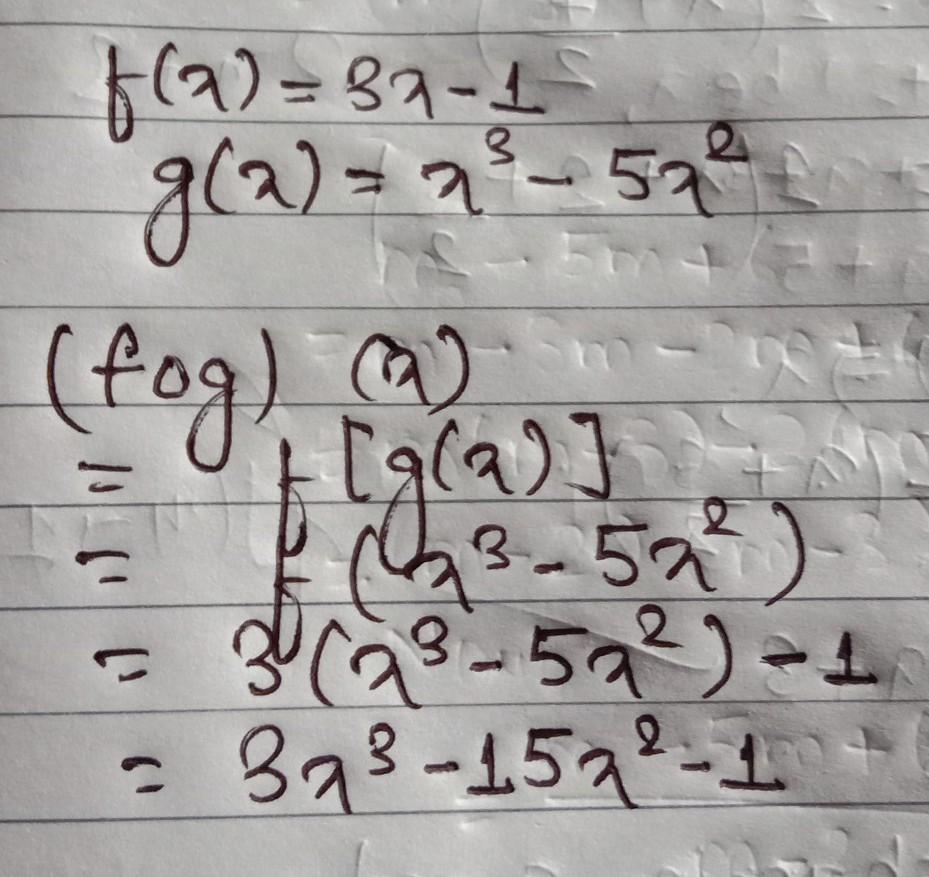 f(x) = 3x - 1
g(x) = x³ - 5x²
(fog) (x)
= f [g(x)]
= f (x³ - 5x²)
= 3(x³ - 5x²) - 1
= 3x³ - 15x² - 1